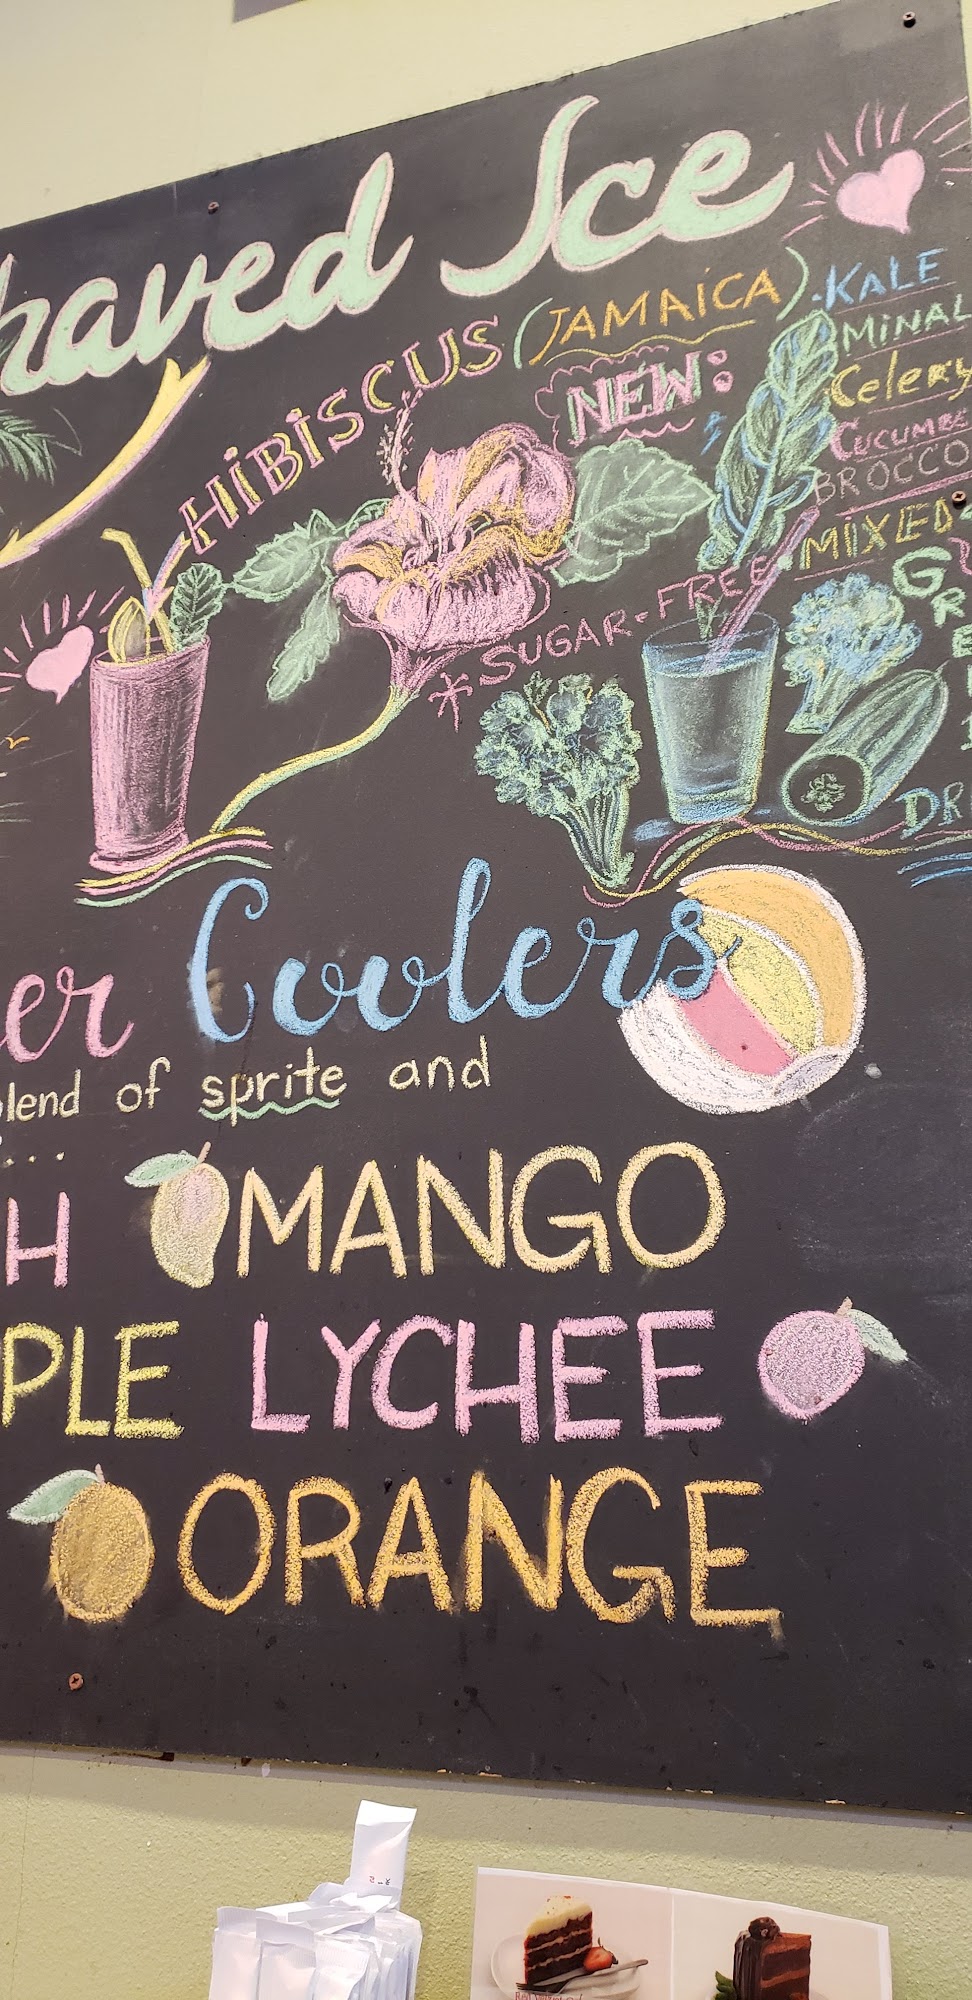 haved Ice
HIBISCUS (JAMAICA)
NEW:
·KALE
MINAL
Celery
CUCUMBE
BROCCO
MIXED
GRE
*SUGAR-FREE
DR
er Coolers
lend of sprite and
...
H MANGO
PLE LYCHEE
ORANGE